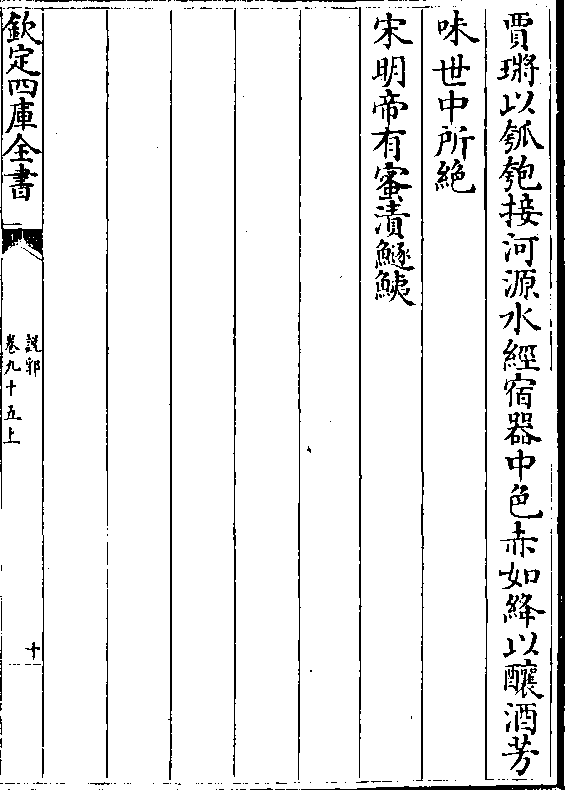 賈瑺以瓠匏接河源水經宿器中色赤如絳以釀酒芳
味世中所絶
宋明帝有蜜漬鱁鮧
欽定四庫全書
說郛
卷九十五上
十